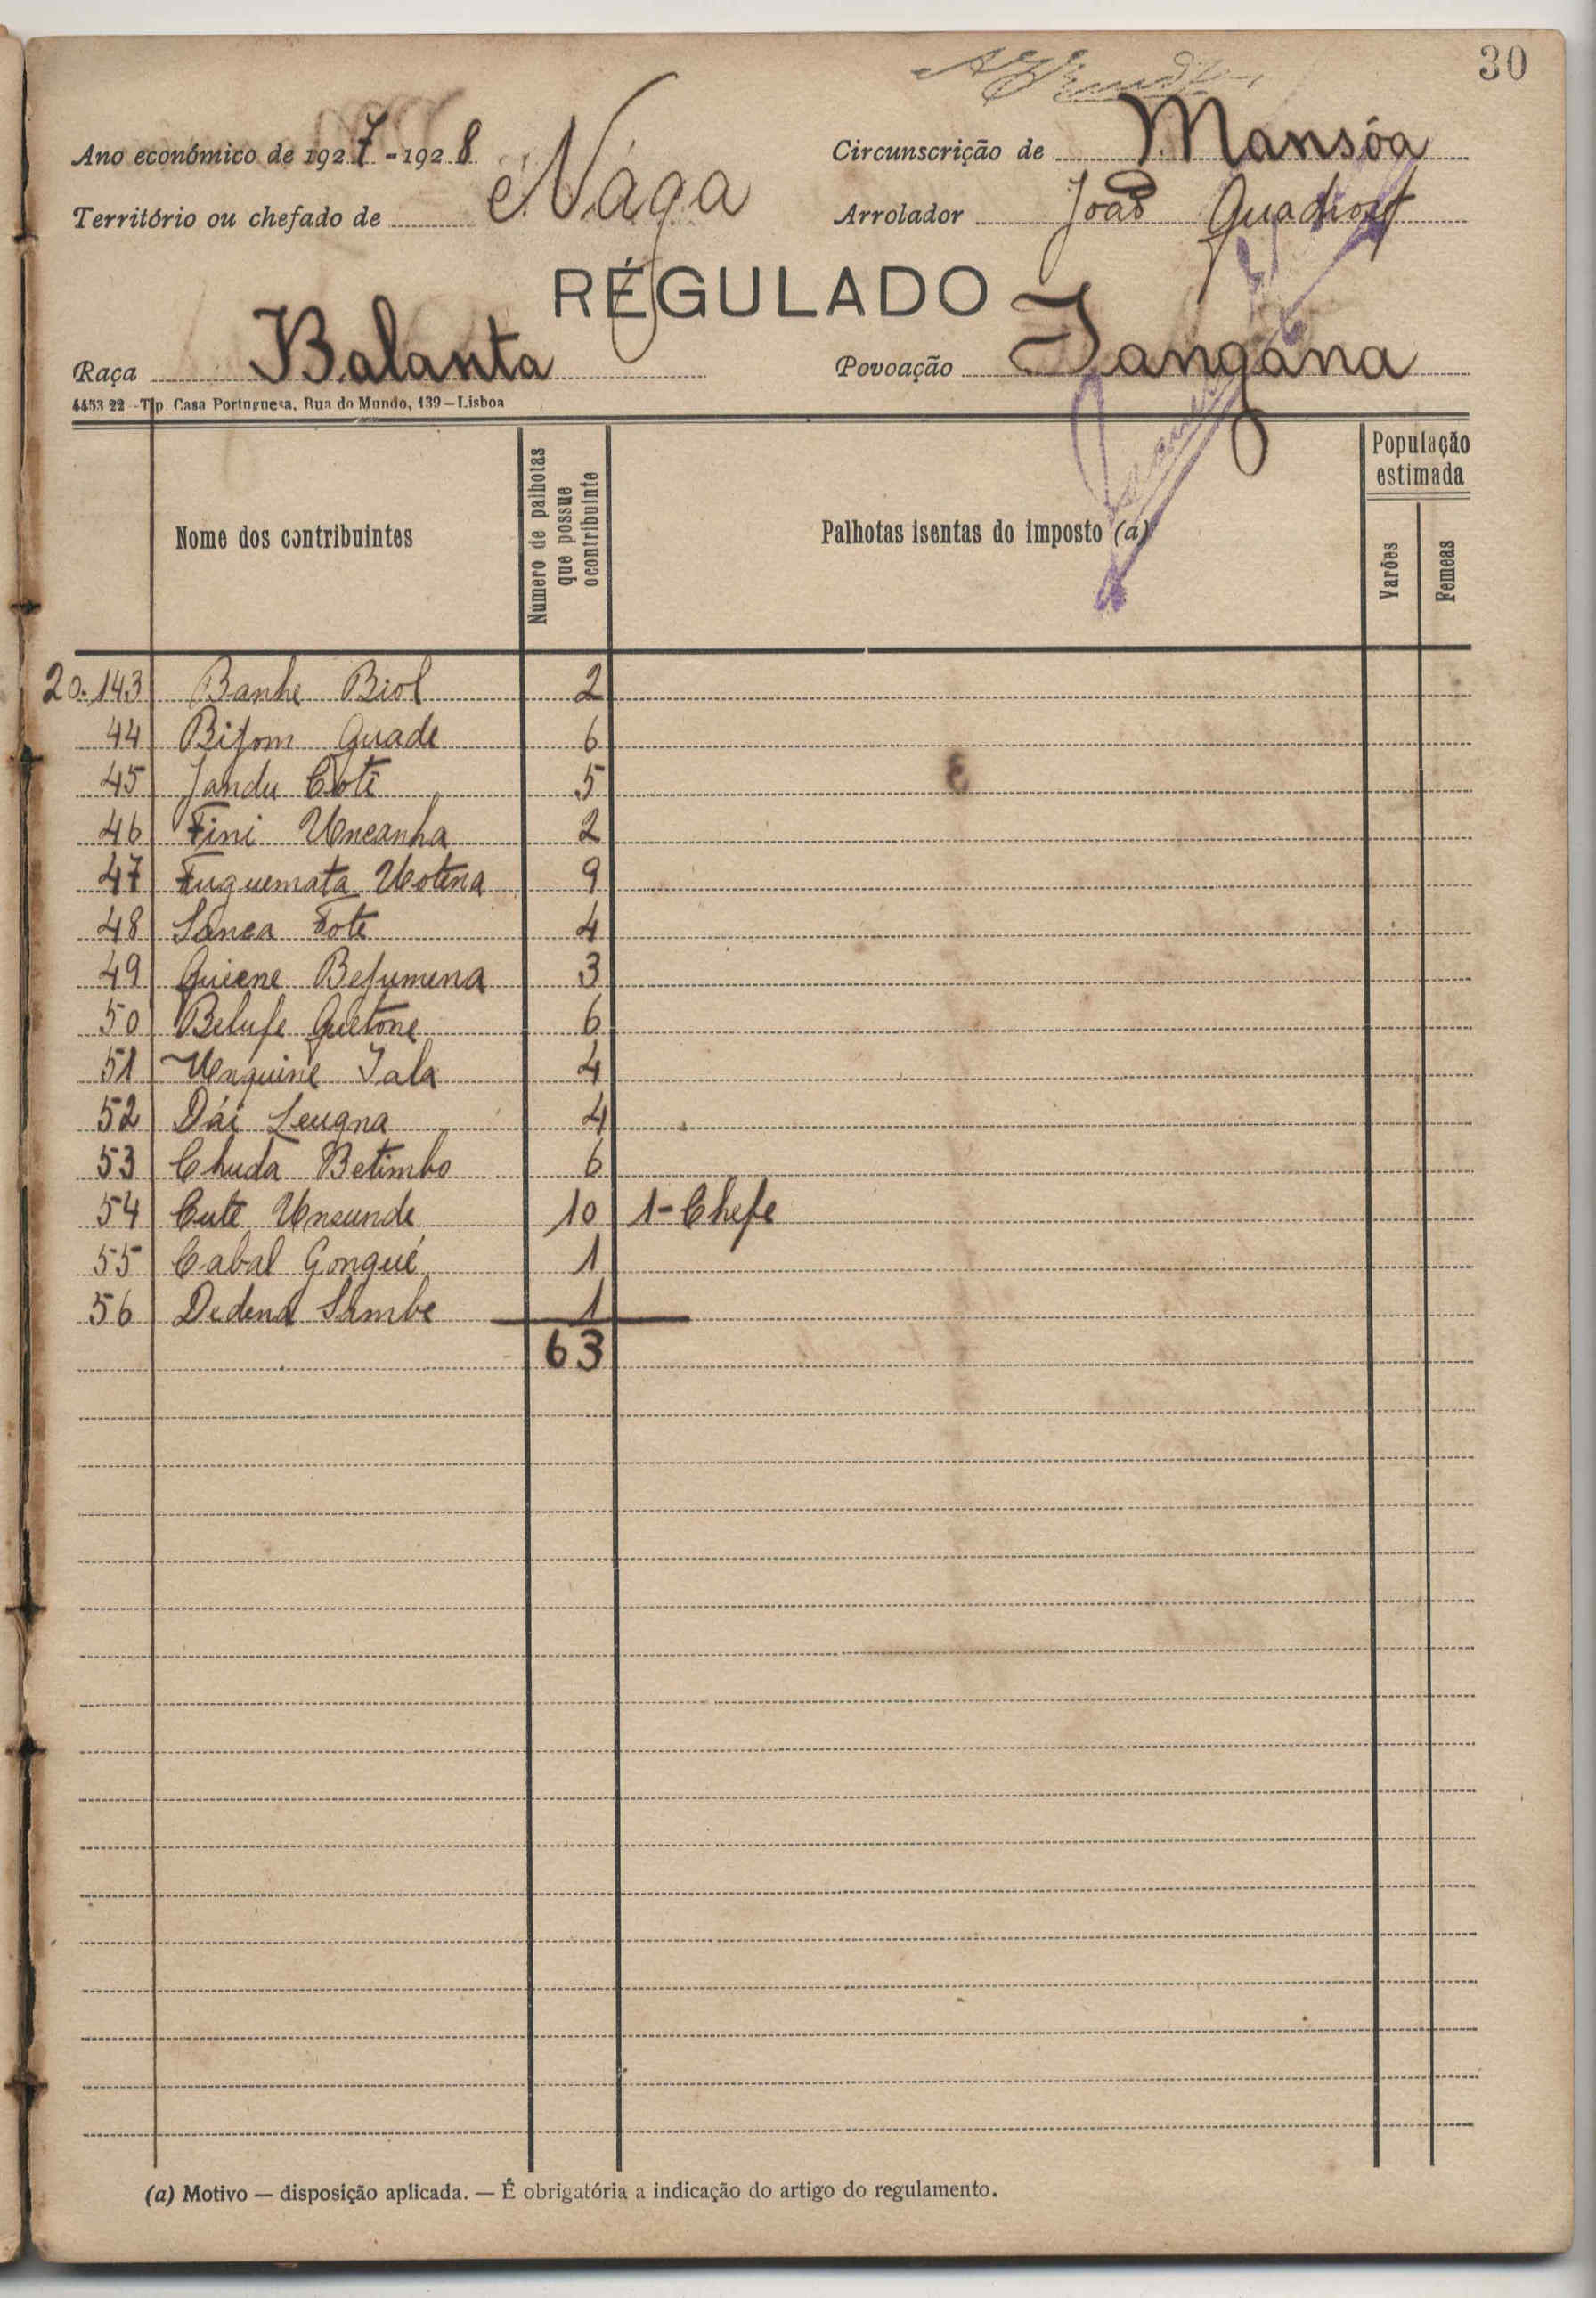 30
Ano económico de 1927-1928
Circunscrição de Mansôa
Território ou chefado de Nága
Arrolador João
RÉGULADO
Raça Balanta
Povoação Jangána
4453 22 - Tip. Casa Portuguesa, Rua do Mundo, 139 – Lisboa
Nome dos contribuintes
Numero de palhotas que possue ocontribuinte
Palhotas isentas do imposto (a)
População estimada
Varões
Femeas
20.143 Banhe Biol 2
44 Bifom Quade 6
45 Jandu Cote 5
46 Fini Uncanha 2
47 Fuguemata Uotena 9
48 Sanca Fote 4
49 Quiene Befumena 3
50 Belufe Quetone 6
51 Unquine Jala 4
52 Dái Leugna 4
53 Chuda Betimbo 6
54 Cute Uncunde 10 1-Chefe
55 Cabal Gongué 1
56 Dedena Sambe 1
63
(a) Motivo — disposição aplicada. — É obrigatória a indicação do artigo do regulamento.